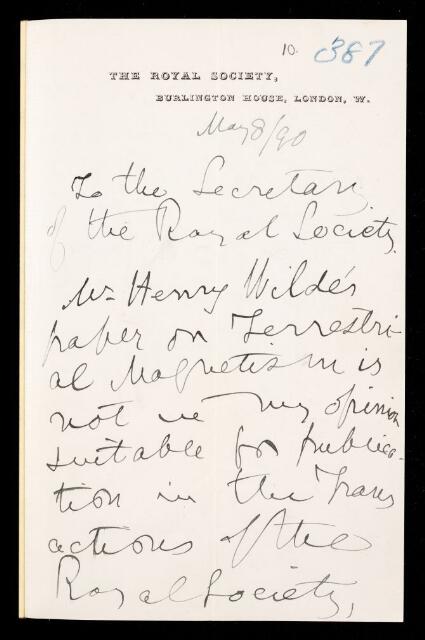 10. 387
THE ROYAL SOCIETY,
BURLINGTON HOUSE, LONDON, W.
May 8/90
To the Secretary
of the Royal Society.
Mr Henry Wilde's
paper on Terrestri-
al Magnetism is
not in my opinion
suitable for publica-
tion in the Trans
actions of the
Royal Society,